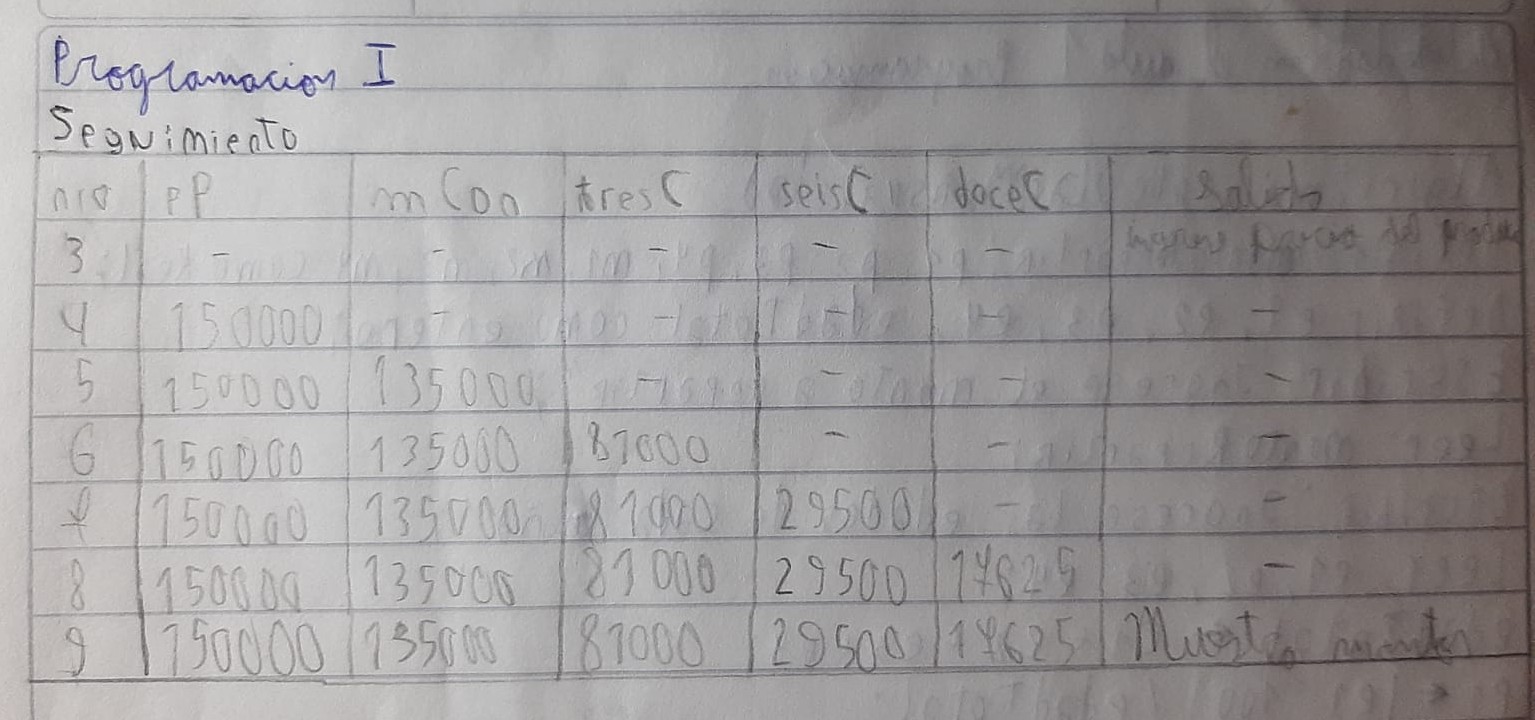 Programacion I
Seguimiento
nro PP mCon tresC seisC doceC salida
3 - - - - - ingrese precio del
4 150000 - - - - -
5 150000 135000 - - - -
6 150000 135000 81000 - - -
7 150000 135000 81000 29500 - -
8 150000 135000 81000 29500 17625 -
9 150000 135000 81000 29500 17625